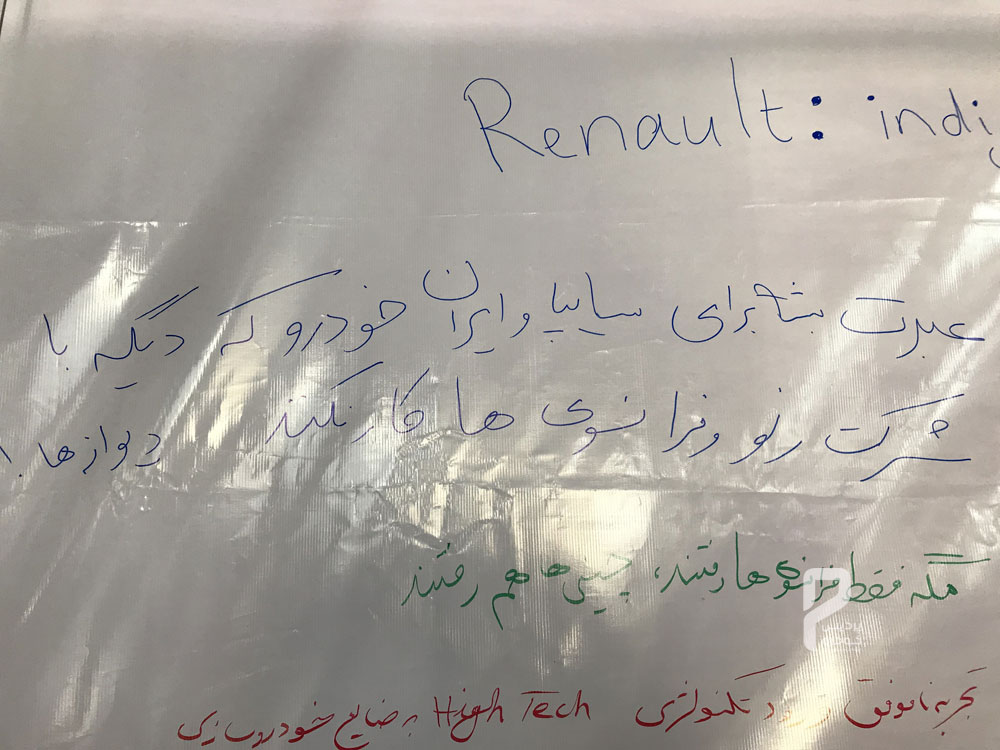 Renault: indi
عبرت بشه برای سایپا و ایران خودرو که دیگه با
شرکت رنو و فرانسوی ها کار نکنند
مگه فقط فرانسوی ها رفتند، چینی ها هم رفتند
تجربه ناموفق ورود تکنولوژی High Tech به صنایع خودروسازی